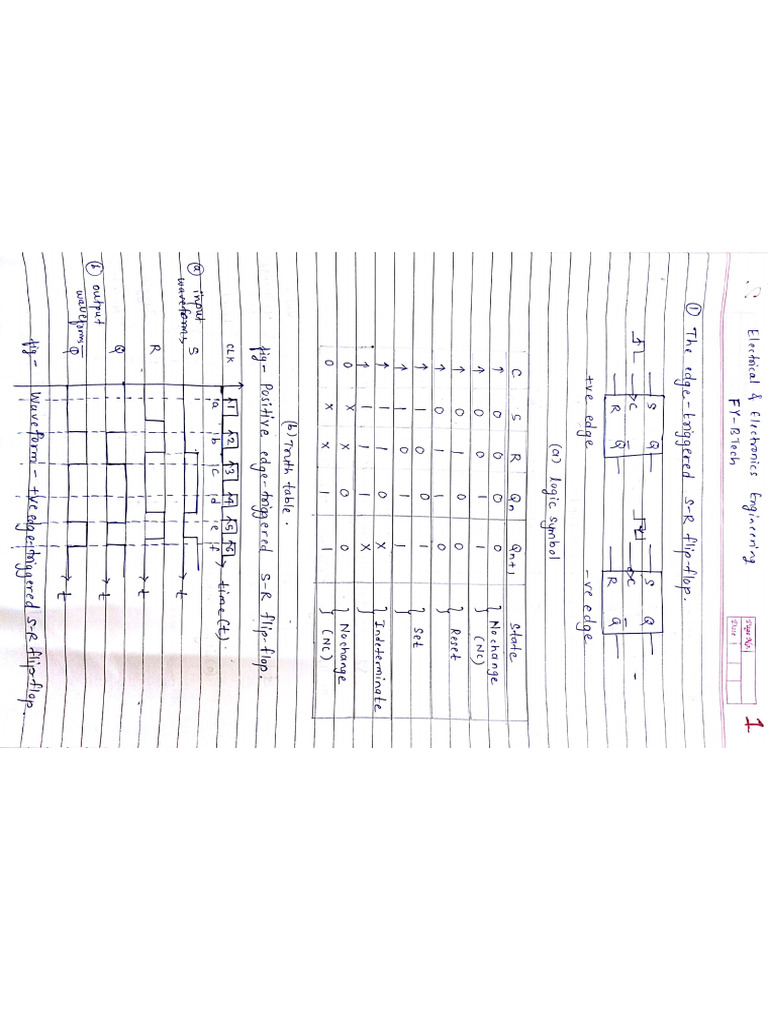 Electrical & Electronics Engineering
FY-BTech
Page No.
Date
1
① The edge-triggered S-R flip-flop.
S Q
>C
R Q̅
S Q
>C
R Q̅
+ve edge
-ve edge
(a) logic symbol
C S R Qn Qn+1 State
↑ 0 0 0 0 } No change
↑ 0 0 1 1 (NC)
↑ 0 1 0 0 } Reset
↑ 0 1 1 0
↑ 1 0 0 1 } Set
↑ 1 0 1 1
↑ 1 1 0 X } Indeterminate
↑ 1 1 1 X
0 X X 0 0 } No change
0 X X 1 1 (NC)
(b) Truth table.
fig- Positive edge-triggered S-R flip-flop.
CLK 1 2 3 4 5 6 → time(t).
a b c d e f
ⓐ input waveforms
S → t
R → t
ⓑ output waveforms
Q → t
Q̅ → t
fig- Waveform - +ve edge-triggered S-R flip-flop.